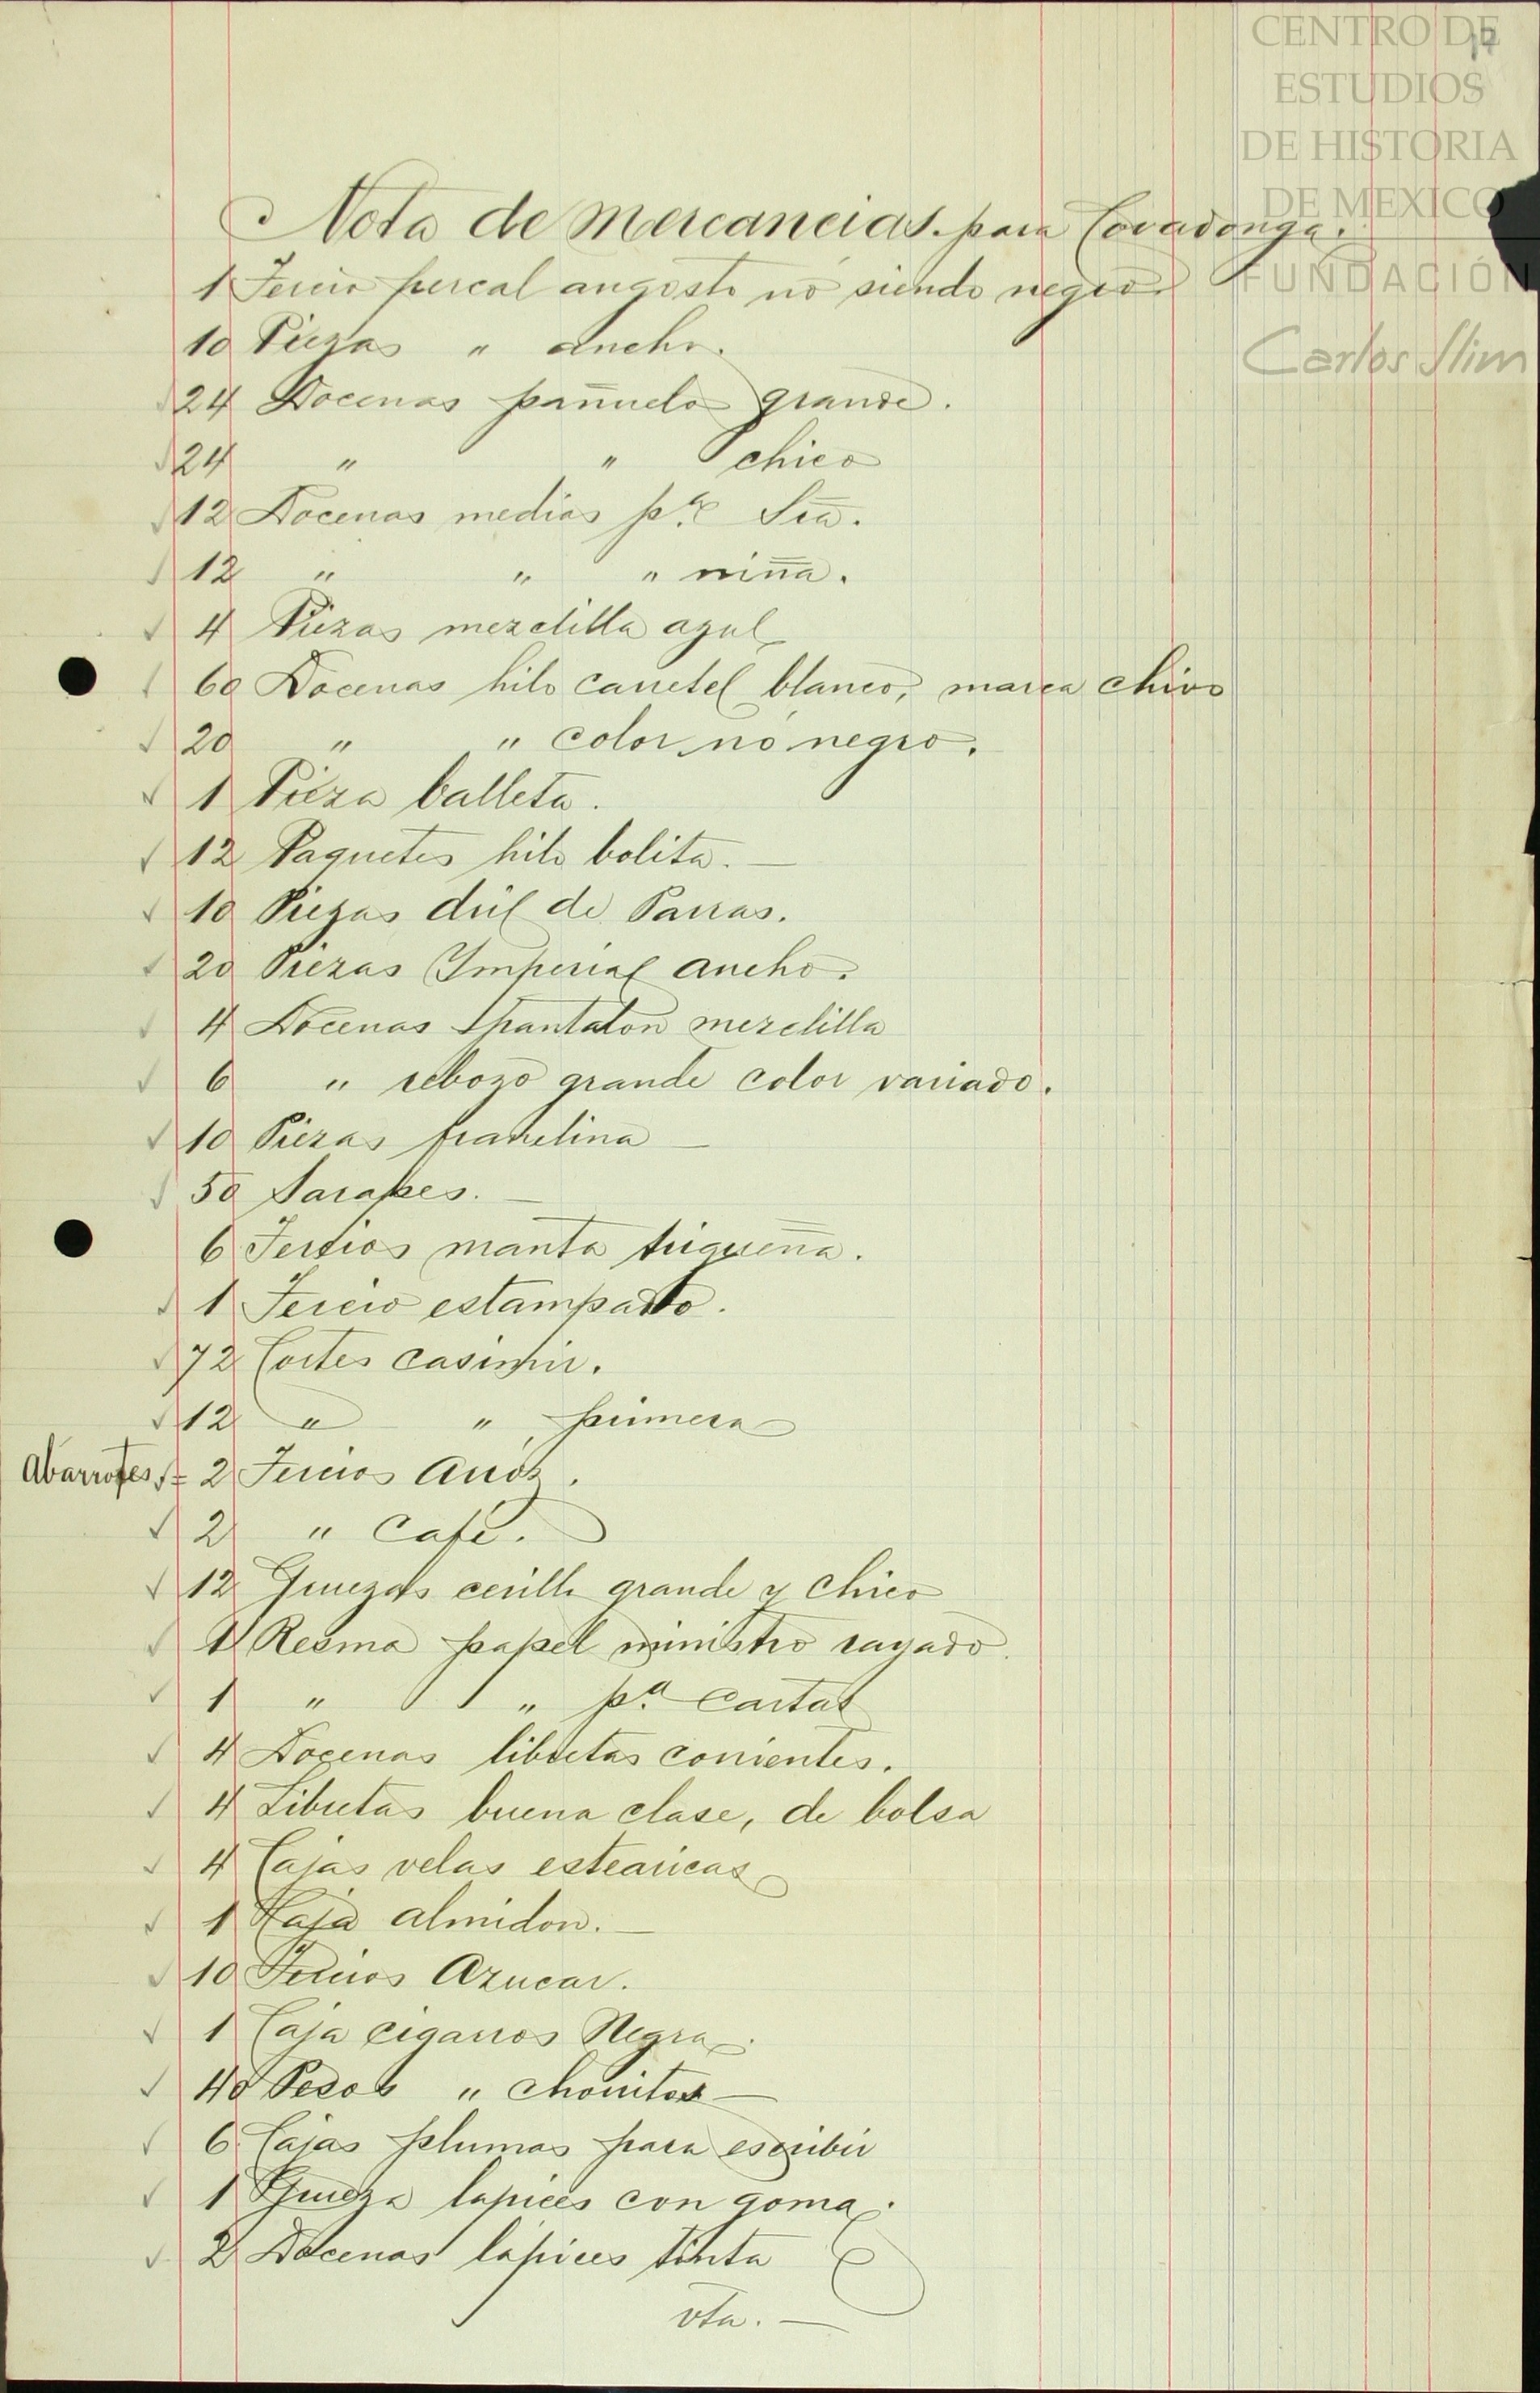 CENTRO DE
ESTUDIOS
DE HISTORIA
DE MEXICO
FUNDACIÓN
Carlos Slim
Nota de Mercancias para Covadonga.
1 Tercio percal angosto no siendo negro
10 Piezas " ancho.
24 Docenas pañuelo grande.
24 " " chico
12 Docenas medias pª Sra.
12 " " " niña.
4 Piezas mezclilla azul
60 Docenas hilo carretel blanco, marca chivo
20 " " color no negro.
1 Pieza balleta.
12 Paquetes hilo bolita. —
10 Piezas dril de Parras.
20 Piezas Imperial ancho.
4 Docenas pantalon mezclilla
6 " rebozo grande color variado.
10 Piezas franelina —
50 Sarapes. —
6 Tercios manta trigueña.
1 Tercio estampado.
72 Cortes casimir.
12 " " primera
Abarrotes = 2 Tercios Arroz.
2 " Café.
12 Gruezas cerillo grande y chico
1 Resma papel ministro rayado.
1 " " pª cartas
4 Docenas libretas corrientes.
4 Libretas buena clase, de bolsa
4 Cajas velas estearicas
1 Caja almidon. —
10 Tercios Azucar.
1 Caja cigarros Negra.
40 Pesos " chorritos —
6 Cajas plumas para escribir
1 Grueza lapices con goma.
2 Docenas lápices tinta
vta. —